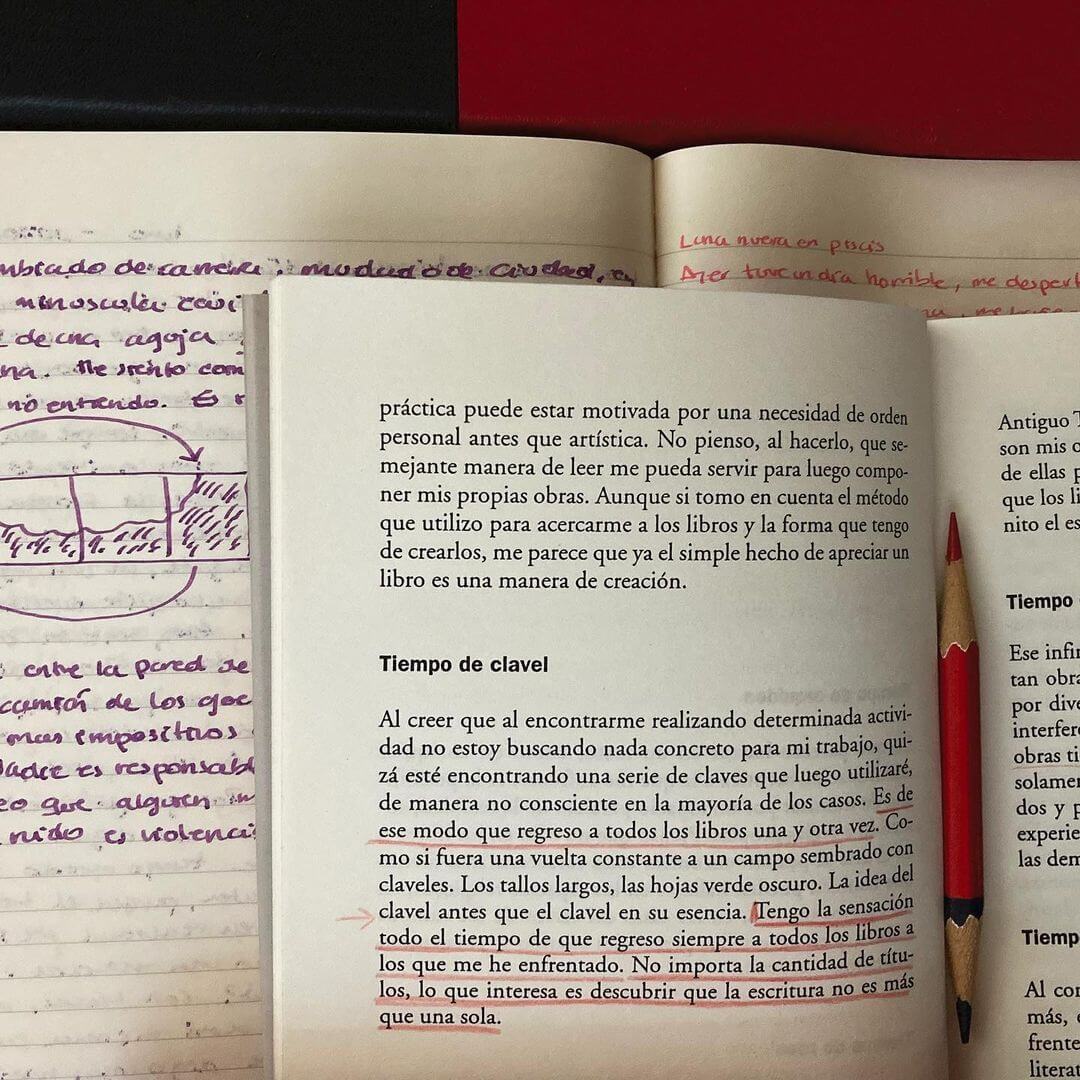 de carrera, mudado de ciudad,
minúscula
de una agoja
Me siento com
no entiendo.
entre la pared se
de los
mas impositivos
es responsabl
que alguien
ruido es violenci
Luna nueva en piscis
Ayer tuve un día horrible, me despert
práctica puede estar motivada por una necesidad de orden
personal antes que artística. No pienso, al hacerlo, que se-
mejante manera de leer me pueda servir para luego compo-
ner mis propias obras. Aunque si tomo en cuenta el método
que utilizo para acercarme a los libros y la forma que tengo
de crearlos, me parece que ya el simple hecho de apreciar un
libro es una manera de creación.
Tiempo de clavel
Al creer que al encontrarme realizando determinada activi-
dad no estoy buscando nada concreto para mi trabajo, qui-
zá esté encontrando una serie de claves que luego utilizaré,
de manera no consciente en la mayoría de los casos. Es de
ese modo que regreso a todos los libros una y otra vez. Co-
mo si fuera una vuelta constante a un campo sembrado con
claveles. Los tallos largos, las hojas verde oscuro. La idea del
clavel antes que el clavel en su esencia. Tengo la sensación
todo el tiempo de que regreso siempre a todos los libros a
los que me he enfrentado. No importa la cantidad de títu-
los, lo que interesa es descubrir que la escritura no es más
que una sola.
Antiguo T
son mis
de ellas p
que los li
nito el es
Tiempo
Ese infin
tan obra
por dive
interfere
obras ti
solamen
dos y p
experie
las dem
Tiemp
Al con
más, e
frente
literat